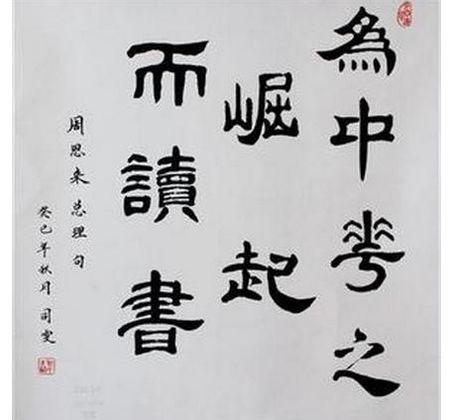 為中華之
崛起
而讀書
周恩来总理句
癸巳年秋月司雯